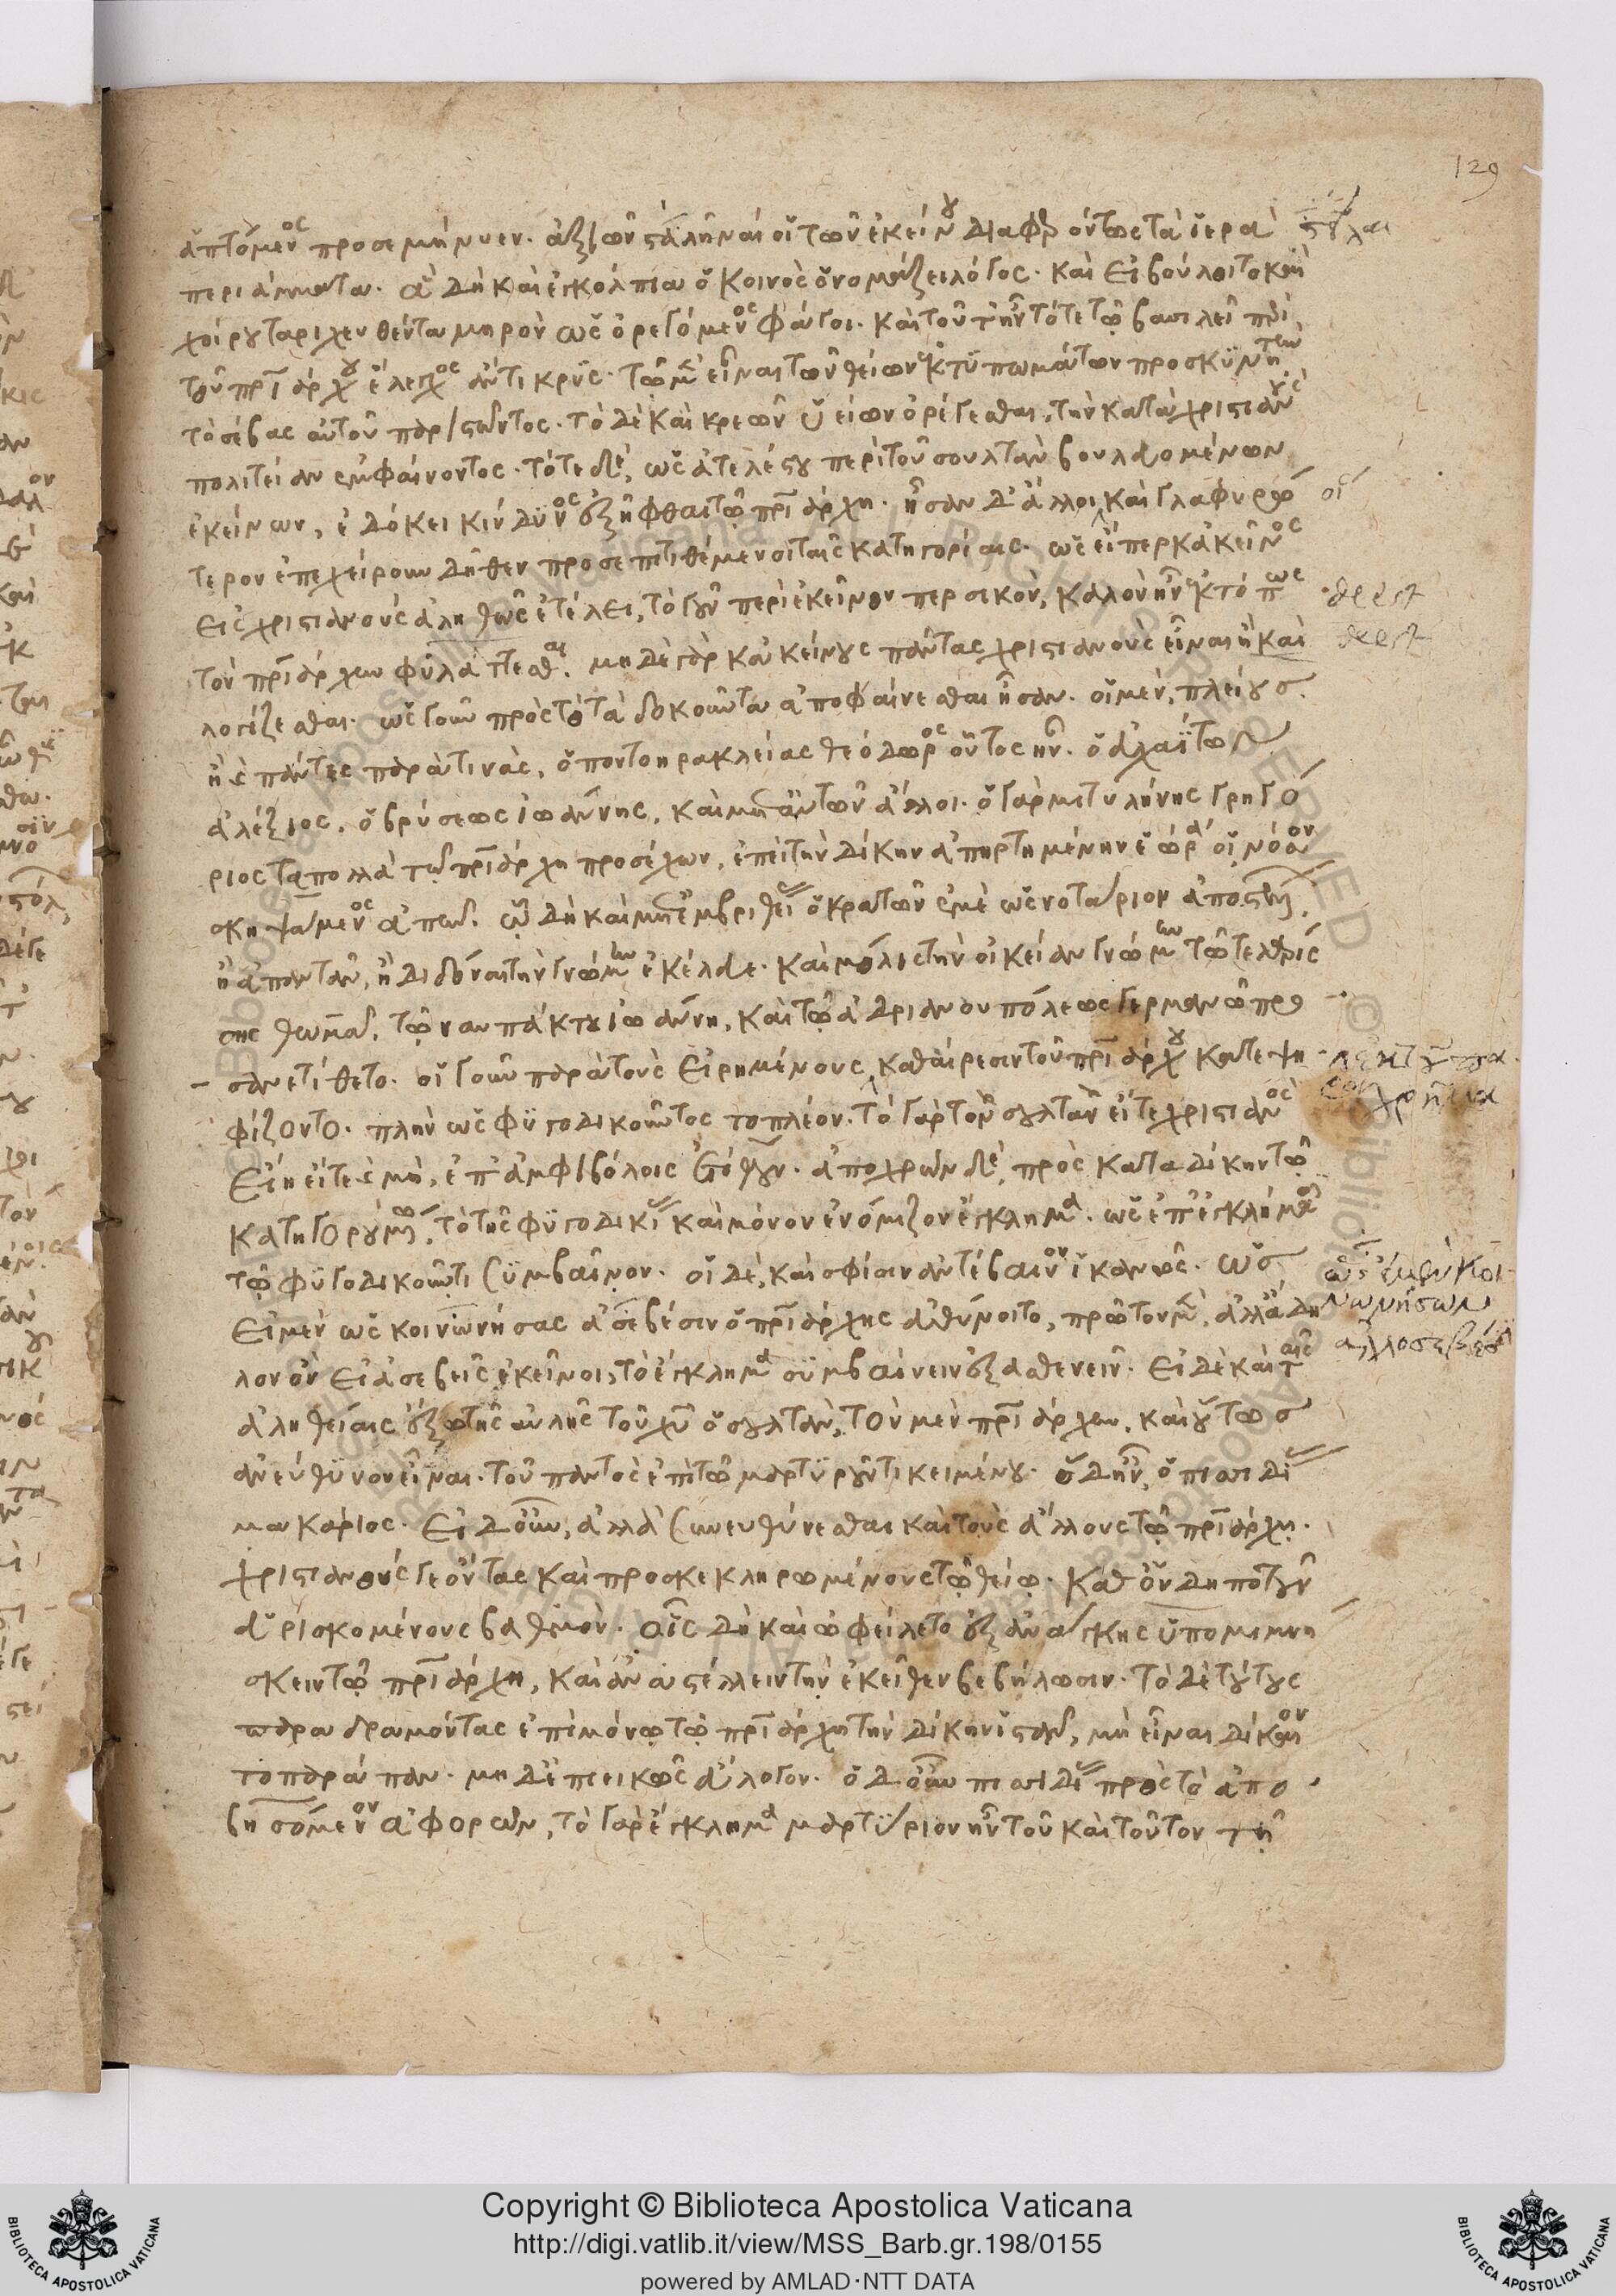 129
ἁπτόμενος προσεμήνυεν. ἀξιῶν σταλῆναί οἱ τῶν ἐκείνου διαφερόντως τὰ ἱερὰ
περιάμματα. ἃ δὴ καὶ ἐγκόλπια ὁ κοινὸς ὀνομάζει λόγος. καὶ εἰ βούλοιτο καὶ
χοίρου ταριχευθέντα μηρὸν ὡς ὀρεγόμενος φάγοι. καὶ τοῦτ' ἦν τότε τῷ βασιλεῖ περὶ
τοῦ πατριάρχου ἔλεγχος ἄντικρυς. τῷ μὲν εἶναι τῶν θείων ἐκτυπωμάτων προσκυνητὴν
τὸ σέβας αὐτοῦ παριστῶντος. τὸ δὲ καὶ κρεῶν ὑείων ὀρέγεσθαι, τὴν κατὰ χριστιανοὺς
πολιτείαν ἐμφαίνοντος. τότε δέ, ὡς ἀτελέστου περὶ τοῦ σουλτὰν βουλευομένων
ἐκείνων, ἐδόκει κίνδυνος ἐξῆφθαι τῷ πατριάρχῃ. ἦσαν δ' ἄλλοι καὶ γλαφυρώ
τερον ἐπεχείρουν δῆθεν προσεπιτιθέμενοι ταῖς κατηγορίαις. ὡς εἴπερ κἀκεῖνος
εἰς χριστιανοὺς ἀληθῶς ἐτέλει, τὸ γοῦν περὶ ἐκεῖνον περσικόν, καλὸν ἦν ἐκτόπως
τὸν πατριάρχην φυλάττεσθαι. μηδὲ γὰρ κἀκείνους πάντας χριστιανοὺς εἶναι ἢ καὶ
λογίζεσθαι. ὡς γοῦν πρὸς τὸ τὰ δοκοῦντα ἀποφαίνεσθαι ἦσαν. οἱ μέν, πλείους
ἢ πάντες παρά τινας, ὁ ποντοηρακλείας θεόδωρος οὗτος ἦν. ὁ ἀχαΐτων
ἀλέξιος, ὁ βρύσεως ἰωάννης, καὶ μετ' αὐτῶν ἄλλοι. ὁ γὰρ μιτυλήνης γρηγό
ριος τὰ πολλὰ τῷ πατριάρχῃ προσέχων, ἐπεὶ τὴν δίκην ἀπηρτημένην ἑώρα οἱ νόσον
σκηψάμενος ἀπῆν. ᾧ δὴ καὶ μετ' ἐμβριθείας ὁ κρατῶν ἐμὲ ὡς νοτάριον ἀποστείλας
ἢ ἀπαντᾶν, ἢ διδόναι τὴν γνώμην ἐκέλευε. καὶ μόλις τὴν οἰκείαν γνώμην τῷ τε λαρίσ
σης θωμᾷ, τῷ ναυπάκτου ἰωάννῃ, καὶ τῷ ἀδριανουπόλεως γερμανῷ προ
σανετίθετο. οἱ γοῦν παρὰ τοὺς εἰρημένους, καθαίρεσιν τοῦ πατριάρχου κατεψη
φίζοντο. πλὴν ὡς φυγοδικοῦντος τὸ πλέον. τὸ γὰρ τὸν σουλτὰν εἴτε χριστιανὸς
εἴη εἴτε μή, ἐπ' ἀμφιβόλοις ἐτίθουν. ἀποχρῶν δέ, πρὸς καταδίκην τῷ
κατηγορουμένῳ, τὸ τῆς φυγοδικίας καὶ μόνον ἐνόμιζον ἔγκλημα. ὡς ἐπ' ἐγκλήματος
τῷ φυγοδικοῦντι συμβαῖνον. οἱ δέ, καὶ σφίσιν ἀντέβαινον ἱκανῶς. ὡς
εἰ μὲν ὡς κοινωνήσας ἀσεβέσιν ὁ πατριάρχης εὐθύνοιτο, πρῶτον μέν, ἀλλὰ δῆ
λον ὂν εἰ ἀσεβεῖς ἐκεῖνοι, τὸ ἔγκλημα συμβαίνειν ἐξασθενεῖν. εἰ δὲ καὶ ταῖς
ἀληθείαις ἔξω τῆς αὐλῆς τοῦ χριστοῦ ὁ σουλτάν, τὸν μὲν πατριάρχην, καὶ οὕτως
ἀνεύθυνον εἶναι. τοῦ παντὸς ἐπὶ τῷ μαρτυροῦντι κειμένου. ὃς δ' ἦν, ὁ πισιδίας
μακάριος. εἰ δ' οὖν, ἀλλὰ συνευθύνεσθαι καὶ τοὺς ἄλλους τῷ πατριάρχῃ.
χριστιανούς γε ὄντας καὶ προσκεκληρωμένους τῷ θείῳ. καθ' ὃν δήποτ' οὖν
εὑρισκομένους βαθμόν. οἷς δὴ καὶ ὠφείλετο ἐξ ἀνάγκης ὑπομιμνή
σκειν τῷ πατριάρχῃ, καὶ ἀναστέλλειν τὴν ἐκεῖθεν βεβήλωσιν. τὸ δὲ τούτους
παραδραμόντας ἐπὶ μόνῳ τῷ πατριάρχῃ τὴν δίκην ἱστᾶν, μὴ εἶναι δίκαιον
τὸ παράπαν. μηδ' ἐπιεικῶς εὔλογον. ὁ δ' οὖν πισιδίας πρὸς τὸ ἀπο
βησόμενον ἀφορῶν, τὸ γὰρ ἔγκλημα μαρτύριον ἦν τοῦ καὶ τοῦτον τῇ
οἳ
deest
deest
Copyright © Biblioteca Apostolica Vaticana
http://digi.vatlib.it/view/MSS_Barb.gr.198/0155
powered by AMLAD·NTT DATA
BIBLIOTECA APOSTOLICA VATICANA
BIBLIOTECA APOSTOLICA VATICANA